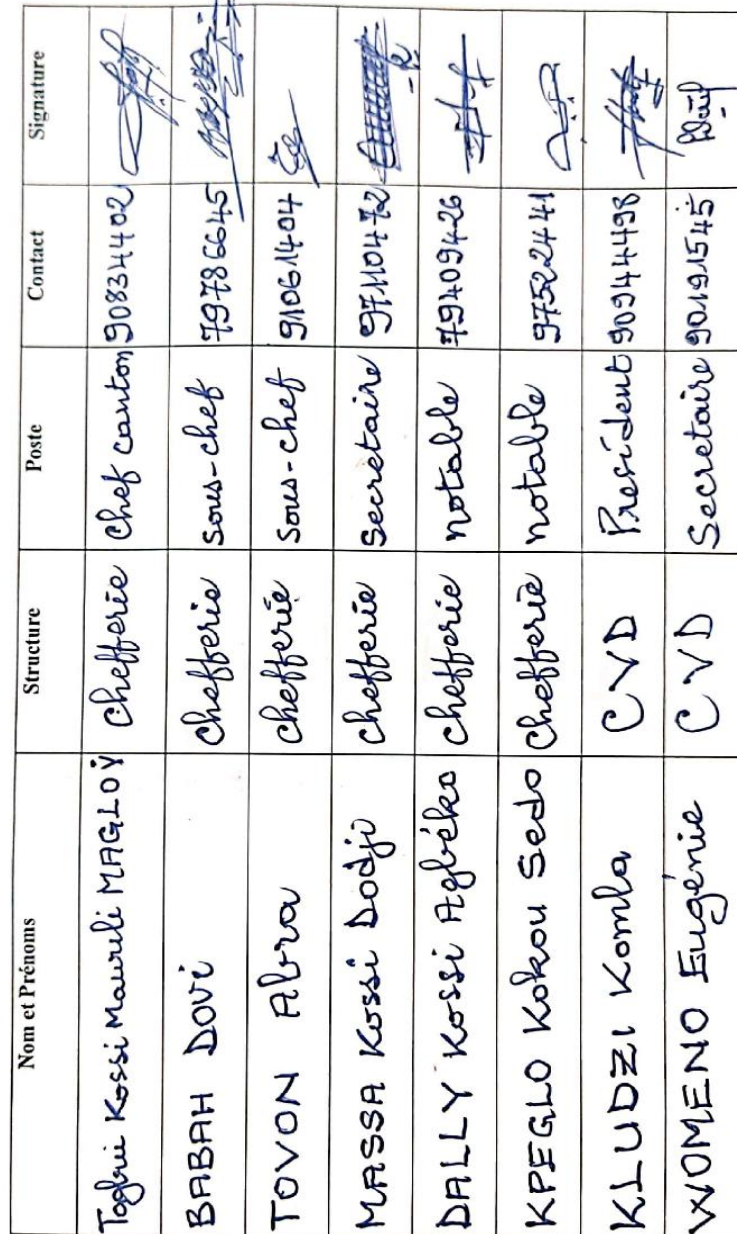 Nom et Prénoms Structure Poste Contact Signature
Togbui Kossi Mawuli MAGLOŸ chefferie chef canton 90834402
BABAH Dovi chefferie sous-chef 79786645
TOVON Abra chefferie sous-chef 91061404
MASSA Kossi Dodji chefferie secretaire 97110472
DALLY Kossi Agbéko chefferie notable 79409426
KPEGLO Kokou Sedo chefferie notable 97522441
KLUDZI Komla CVD President 90944498
WOMENO Eugénie CVD Secretaire 90191545